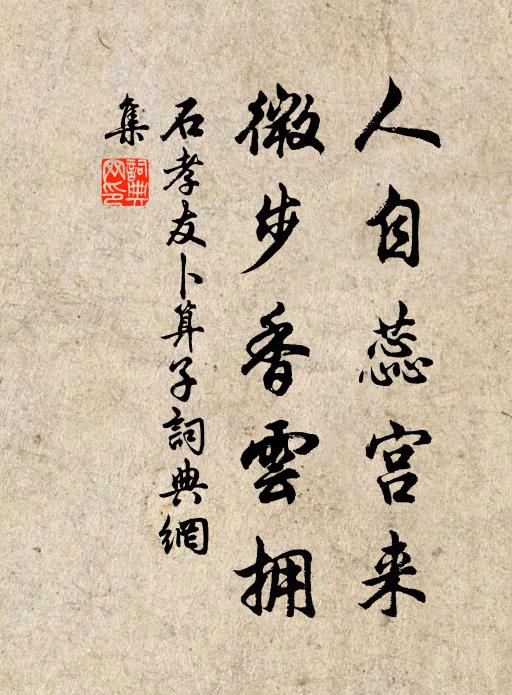 人自蕊宫来
微步香雲拥
石孝友卜算子詞典網
集
詞典网印